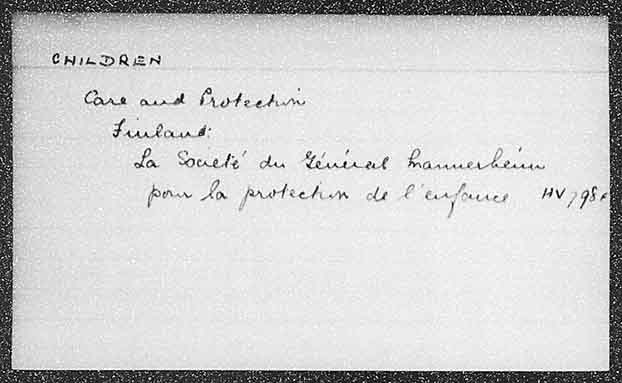 CHILDREN
Care and Protection
Finland:
La Société du Général Mannerheim
pour la protection de l'enfance HV798